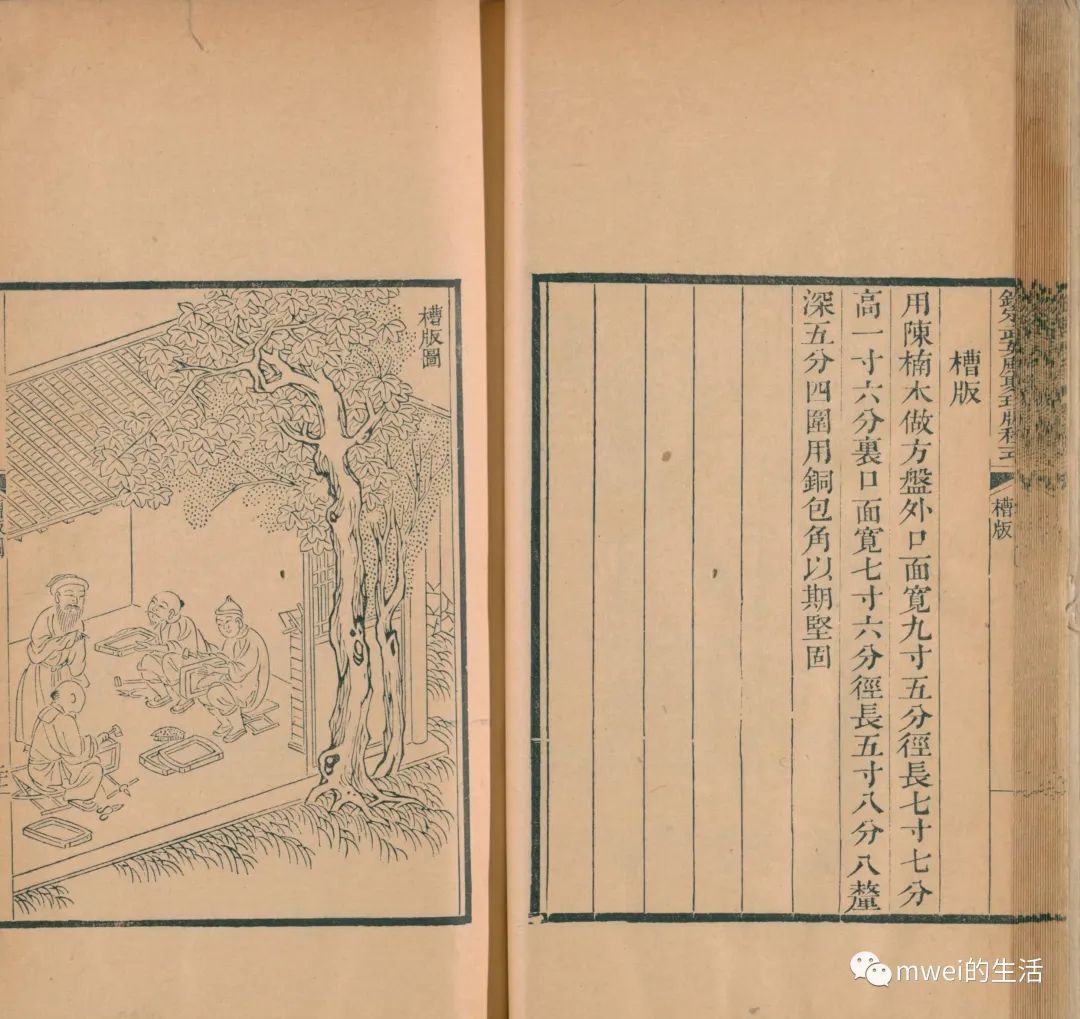 欽定武英殿聚珍版程式
槽版
槽版
用陳楠木做方盤外口面寬九寸五分徑長七寸七分
高一寸六分裏口面寬七寸六分徑長五寸八分八釐
深五分四圍用銅包角以期堅固
槽版圖
mwei的生活